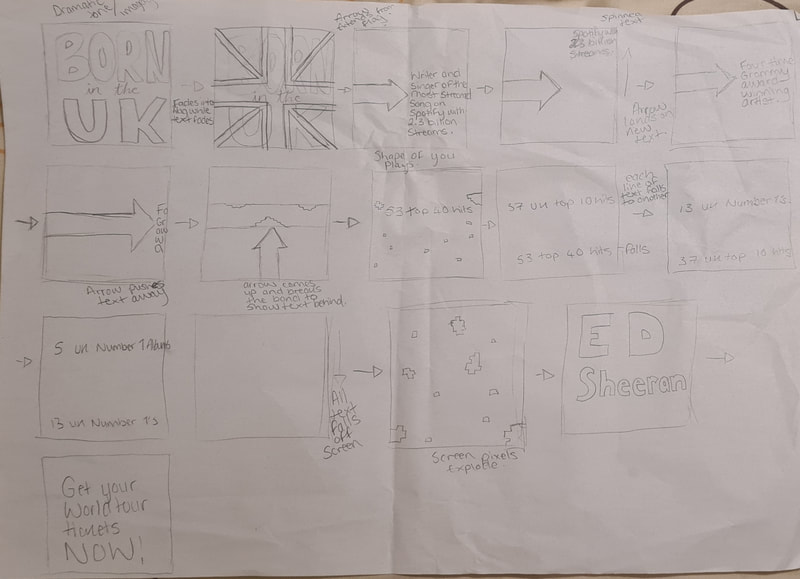 Dramatic
BORN
in the
UK
Fades into
flag while
text fades
in the
Arrows from
Play
Writer and
singer of the
most streamed
Song on
Spotify with
2.3 billion
Streams.
Spotify with
2.3 billion
Streams.
Spinned
text
Arrow
lands on
new
text
Four time
Grammy
award
winning
artist.
Fo
Gr
aw
wi
a
Arrow pushes
text away
arrow comes
up and breaks
the band to
show text behind.
Shape of you
Plays
53 top 40 hits
37 UK top 10 hits
53 top 40 hits
Falls
each
line of
text falls
to another
13 UK Number 1's
37 UK top 10 hits
5 UK Number 1 Albums
13 UK Number 1's
All
text
falls
off
Screen
Screen pixels
Explode
ED
Sheeran
Get your
World tour
tickets
NOW!